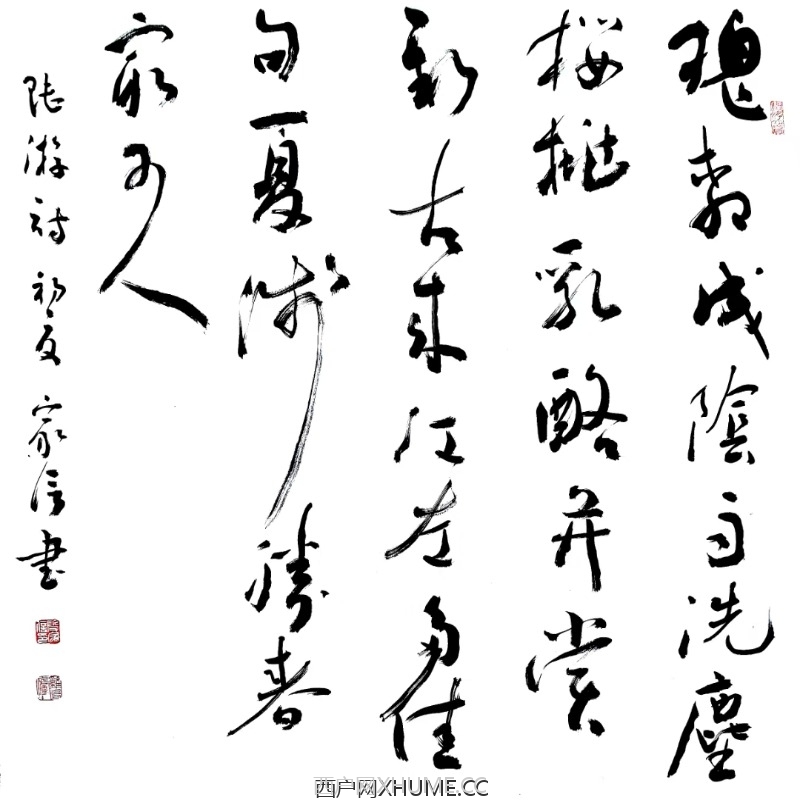 槐柳成陰雨洗塵
樱桃乳酪并嘗
新古来江左多佳
句夏浅勝春
最可人
陸游詩初夏家信書
西户网XHUME.CC